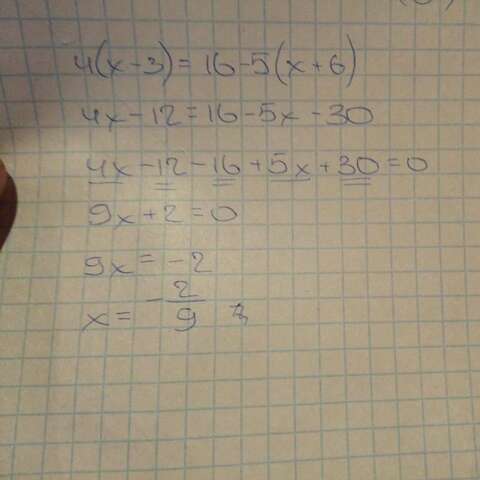 4(x-3)=16-5(x+6)
4x-12=16-5x-30
4x-12-16+5x+30=0
9x+2=0
9x=-2
x=-2/9